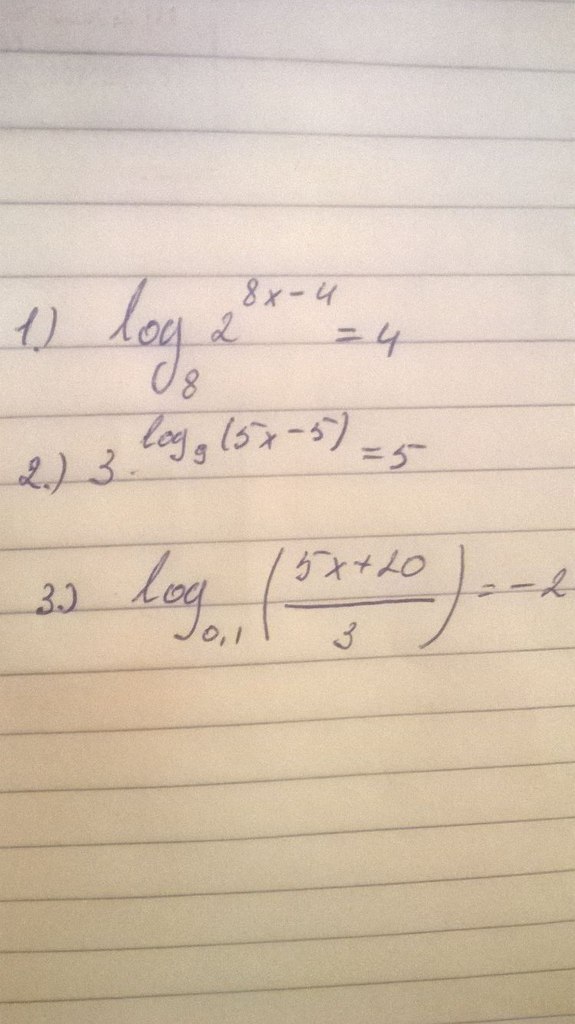 1.) log₈ 2^(8x-4) = 4
2.) 3^(log₉(5x-5)) = 5
3.) log₀,₁ ((5x+20)/3) = -2